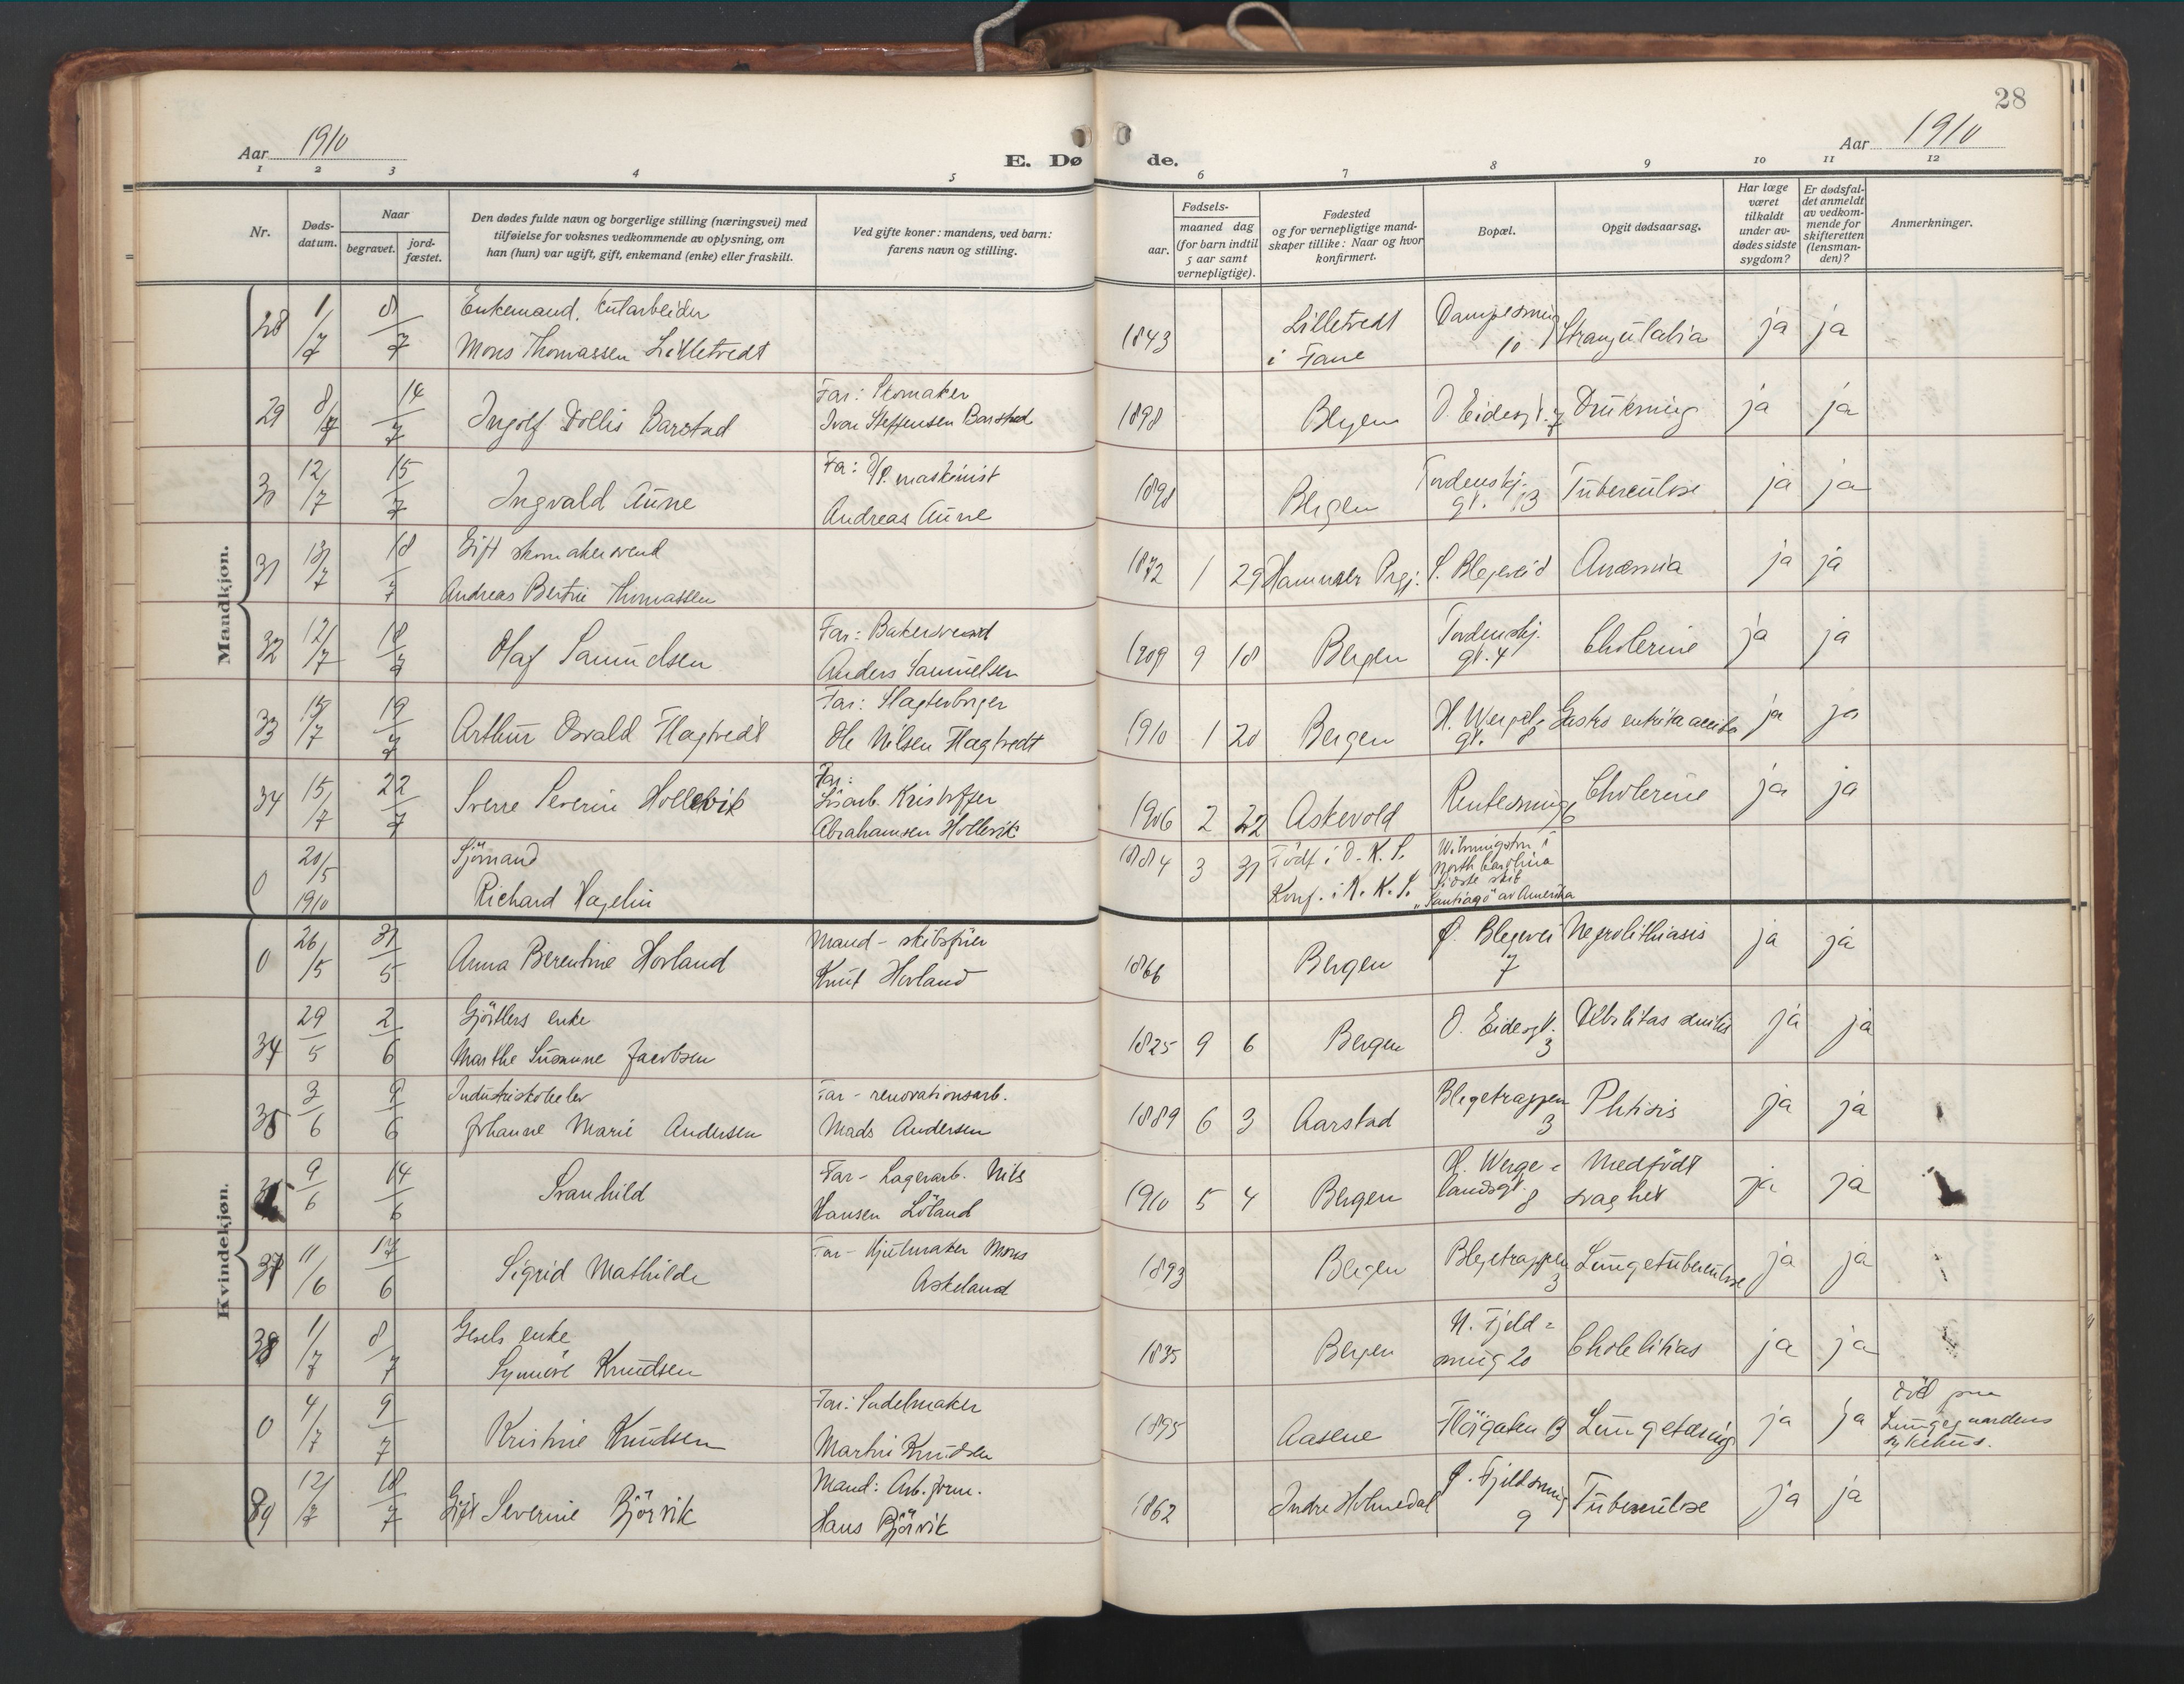 28
Aar 1910
E. Dø de.
Aar 1910
1 2 3 4 5 6 7 8 9 10 11 12
Nr.
Døds-
datum.
Naar
begravet.
jord-
fæstet.
Den dødes fulde navn og borgerlige stilling (næringsvei) med
tilføielse for voksnes vedkommende av oplysning, om
han (hun) var ugift, gift, enkemand (enke) eller fraskilt.
Ved gifte koner: mandens, ved barn:
farens navn og stilling.
Fødsels-
aar.
maaned dag
(for barn indtil
5 aar samt
vernepligtige).
Fødested
og for vernepligtige mand-
skaper tillike: Naar og hvor
konfirmert.
Bopæl.
Opgit dødsaarsag.
Har læge
været
tilkaldt
under av-
dødes sidste
sygdom?
Er dødsfal-
det anmeldt
av vedkom-
mende for
skifteretten
(lensman-
den)?
Anmerkninger.
Mandkjøn.
28 1/7 8/7 Enkemand.
Mons Thomassen Lilletvedt
1843 Lilletvedt
i Fane
10 Strangulatio ja ja
29 8/7 14/7 Ingolf Dollis Barstad
Far: Skomaker
Ivar Steffensen Barstad
1898 Bergen Ø. Eidesgt. 7 Drukning ja ja
30 12/7 15/7 Ingvald Aune
Fa: maskinist
Andreas Aune
1898 Bergen Tordenskj.
gt. 13 Tuberculose ja ja
31 13/7 18/7 Gift skomakersvend
Andreas Bertin Thomassen
1872 1 29 Hammer Prgj. Anæmia ja ja
32 12/7 18/7 Olaf Samuelsen
Far: Bakersvend
Anders Samuelsen
1909 9 18 Bergen Tordenskj.
gt. 4 Cholerine ja ja
33 15/7 19/7 Arthur Osvald Flagtvedt
Far: Slagterborger
Ole Nilsen Flagtvedt
1910 1 20 Bergen H. Wergel.
gt. 8 ja ja
34 15/7 22/7 Sverre Severin Hollevik
Far:
Kristoffer
Abrahamsen Hollevik
1906 2 22 Askevold Cholerine ja ja
0 20/5
1910 Sjømand
Richard Hagelin
1884 3 31 Født i D. K. S.
Konf. i N. K. S.
Wilmington i
North Carolina
sidste skib
„Santiago" av Amerika
Kvindekjøn.
0 26/5 31/5 Anna Berentine Hovland
Mand - skibsfører
Knut Hovland
1866 Bergen 7 Neprolithiasis ja ja
34 29/5 2/6 Gjørtlers enke
Marthe Susanne Jacobsen
1825 9 6 Bergen Ø. Eidesgt.
3 Debilitas senilis ja ja
35 3/6 9/6 Industriskoleelev
Johanne Marie Andersen
Far - renovationsarb.
Mads Andersen
1889 6 3 Aarstad Blegetrappen
3 Phtisis ja ja
9/6 14/6 Svanhild
Far - Lagerarb. Nils
Hansen Løland
1910 5 4 Bergen H. Werge-
landsgt. 8 Medfødt
svaghet ja ja
37 11/6 17/6 Sigrid Mathilde
Far - Hjulmaker Mons
Askeland
1893 Bergen Blegetrappen
3 Lungetuberculose ja ja
38 1/7 8/7 enke
Synnøve Knudsen
1835 Bergen N. Fjeld-
smug 20 Cholelitias ja ja
0 4/7 9/7 Kristine Knudsen
Far: Sadelmaker
Martin Knudsen
1895 Aasene Lungetæring ja ja død paa
Lungegaardens
sykehus.
39 12/7 18/7 Gift Severine Bjørvik
Mand: Arb. form.
Hans Bjørvik
1862 Indre Holmedal Ø. Fjeldsmug
9 Tuberculose ja ja